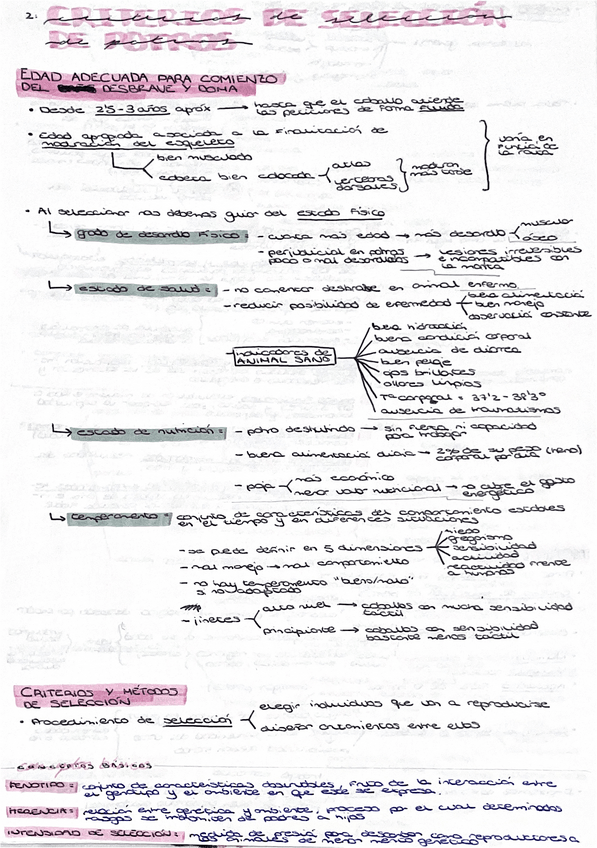 2. CRITERIOS DE SELECCIÓN
DE POTROS
EDAD ADECUADA PARA COMIENZO
DEL DESBRAVE Y DOMA
• Desde 2'5-3 años aprox → hasta que el caballo atiende
las peticiones de forma fluida
• Edad apropiada asociada a la finalización de
maduración del esqueleto
bien musculado
cabeza bien colocada
atlas
vértebras
dorsales
maduran
más tarde
varía en
función de
la raza
• Al seleccionar nos debemos guiar del estado físico
grado de desarrollo físico: - cuanta más edad → más desarrollo
muscular
óseo
- perjudicial en potros
poco o mal desarrollados → lesiones irreversibles
e incompatibles con
la monta
estado de salud: - no comenzar desbrave en animal enfermo
- reducir posibilidad de enfermedad
buena alimentación
buen manejo
observación constante
- indicadores de
ANIMAL SANO
buena hidratación
buena condición corporal
ausencia de diarrea
buen pelaje
ojos brillantes
ollares limpios
Tª corporal = 37'2 - 38'3º
ausencia de traumatismos
estado de nutrición: - potro desnutrido → sin fuerza ni capacidad
para trabajar
- buena alimentación diaria → 2% de su peso (heno)
corporal por día
- paja
más económico
menor valor nutricional → no cubre el gasto
energético
temperamento: conjunto de características del comportamiento estables
en el tiempo y en diferentes situaciones
- se puede definir en 5 dimensiones
miedo
gregarismo
sensibilidad
actividad
reactividad frente
a humanos
- mal manejo → mal comportamiento
- no hay temperamento "bueno/malo"
si no adaptado
- jinetes
alto nivel → caballos con mucha sensibilidad
táctil
principiante → caballos con sensibilidad
bastante menos táctil
CRITERIOS Y MÉTODOS
DE SELECCIÓN
• Procedimiento de selección
elegir individuos que van a reproducirse
diseñar cruzamientos entre ellos
CONCEPTOS BÁSICOS
FENOTIPO: conjunto de características observables, fruto de la interacción entre
el genotipo y el ambiente en que este se expresa.
HERENCIA: relación entre genética y ambiente, proceso por el cual determinados
rasgos se transmiten de padres a hijos
INTENSIDAD DE SELECCIÓN: medida de presión para descartar como reproductores a
los animales de menor mérito genético